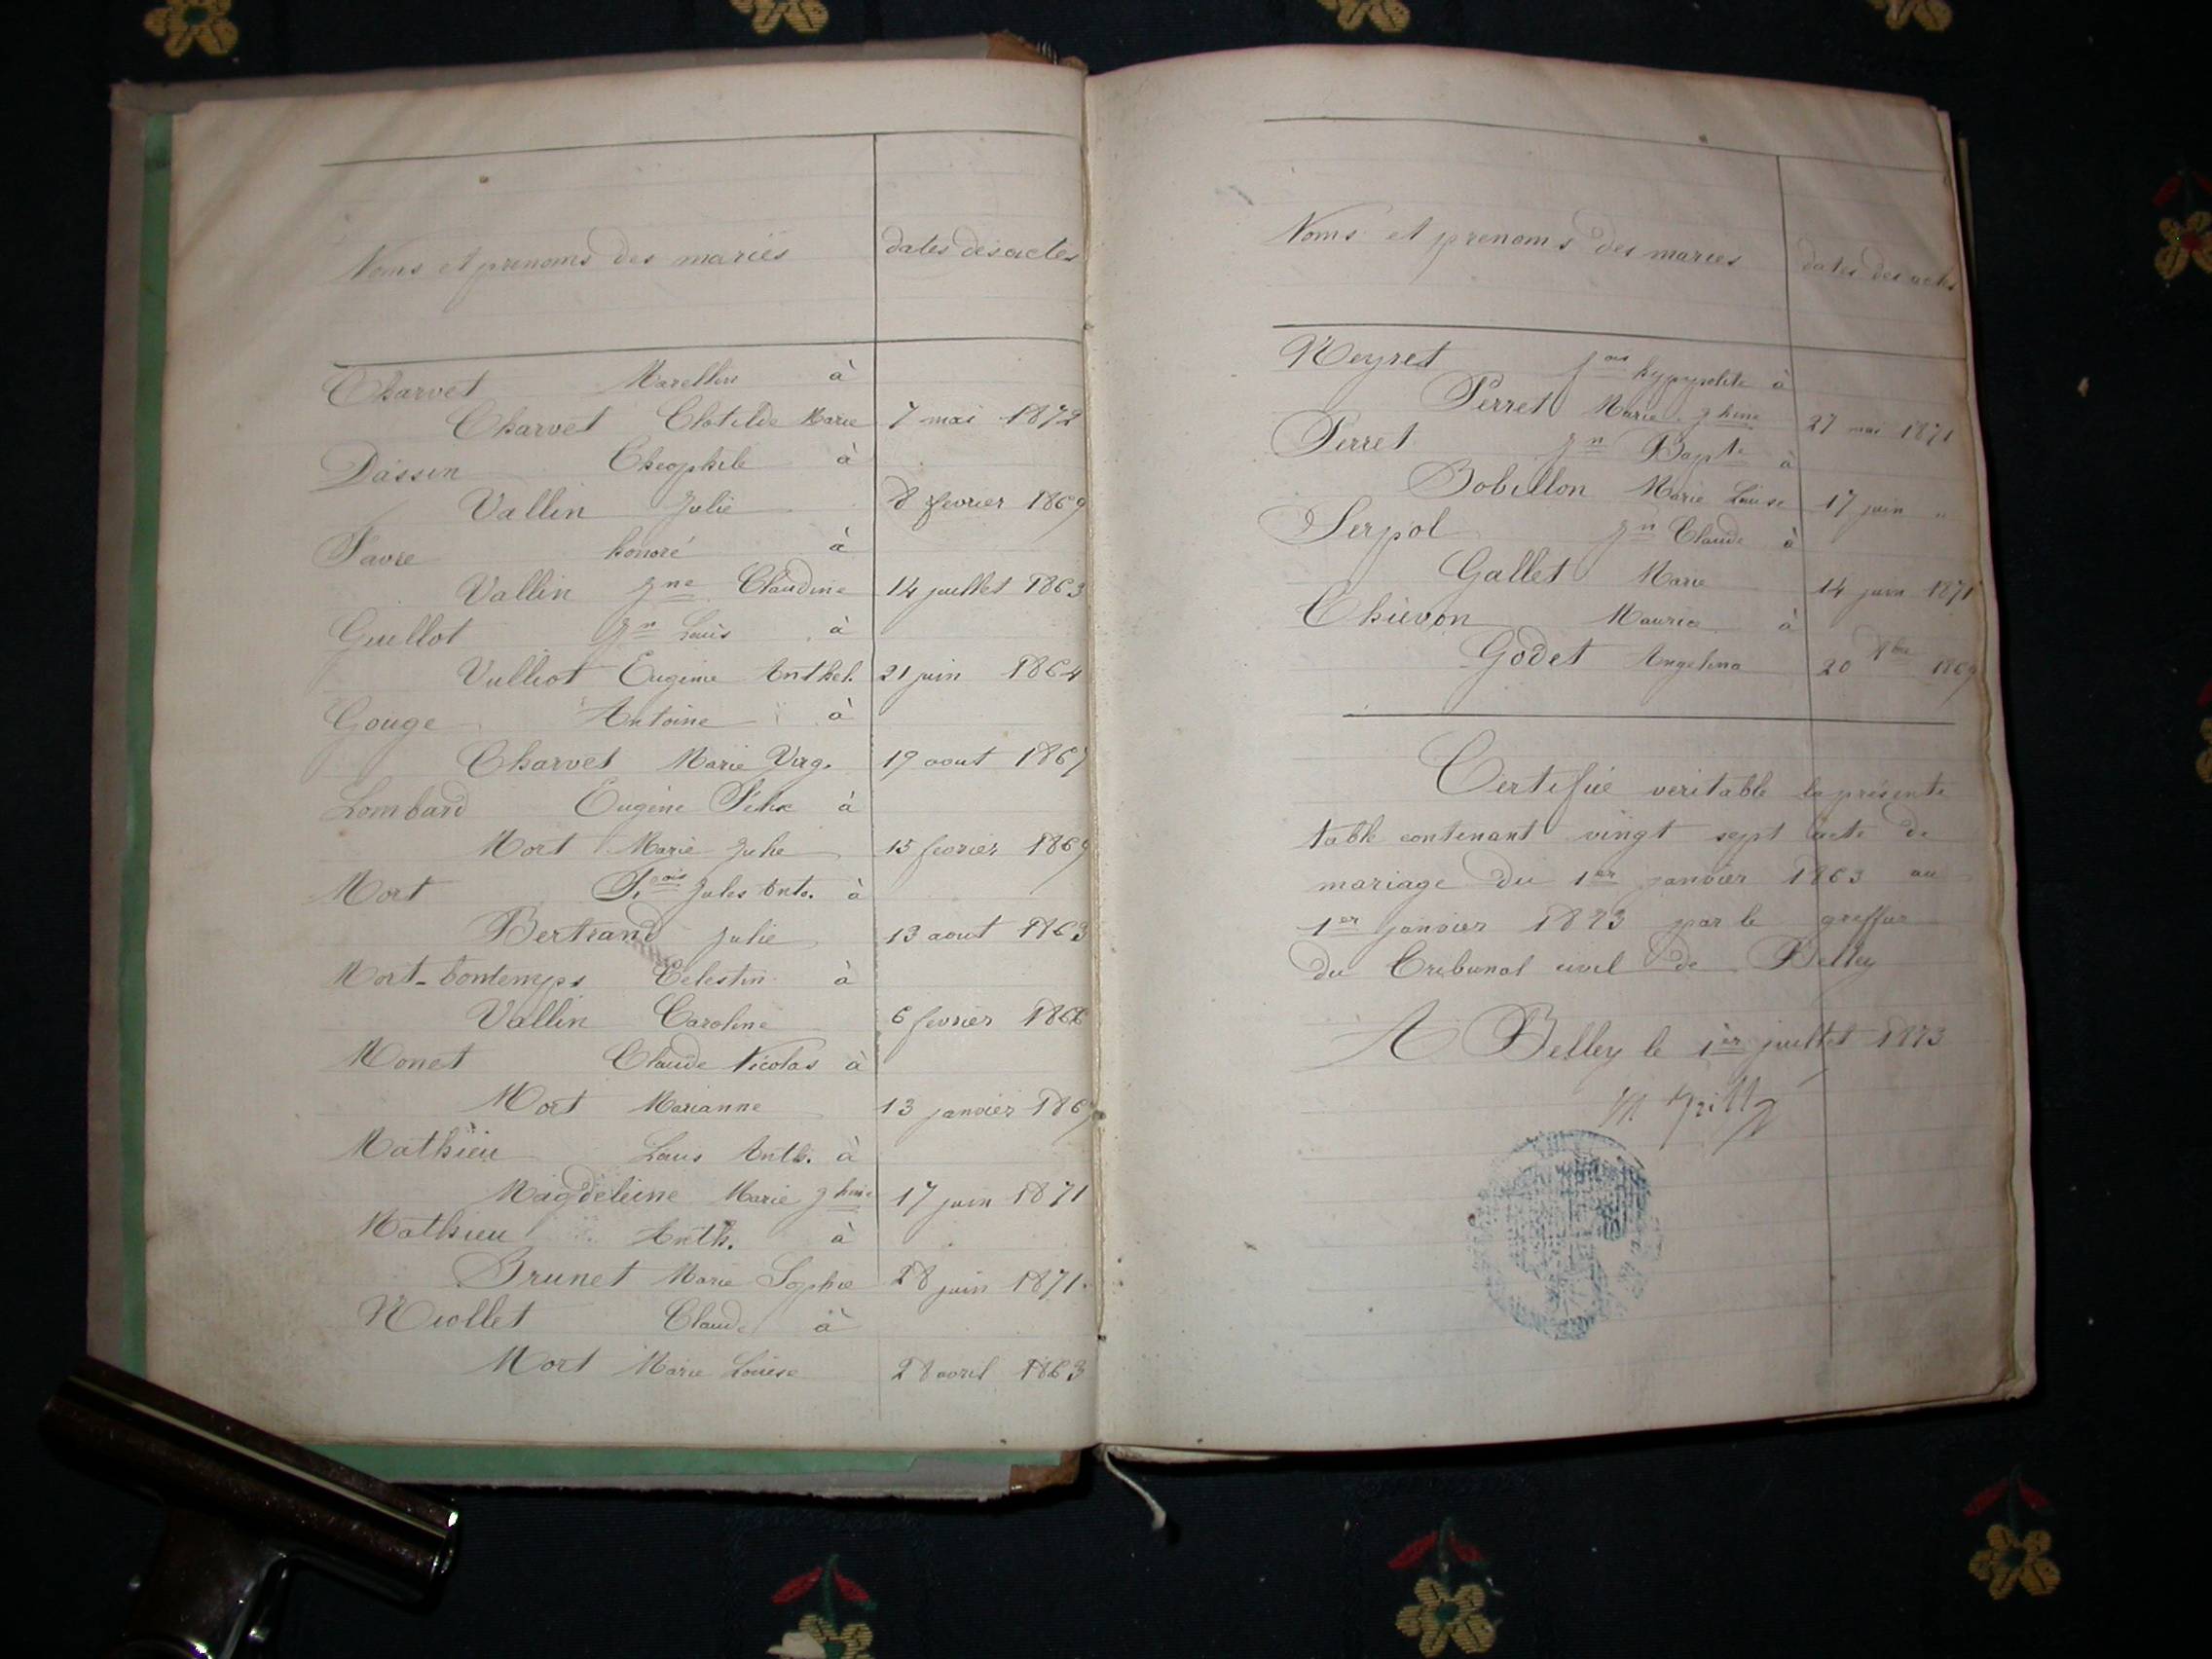 Noms et prenoms des mariés dates des actes
Charvet Marellin à
Charvet Clotilde Marie 7 mai 1872
Dassin Theophile à
Vallin Julie 8 fevrier 1869
Favre honoré à
Vallin Jne Claudine 14 juillet 1863
Guillot Jn Louis à
Vulliot Eugenie Anthel. 21 juin 1864
Gouge Antoine à
Charvet Marie Virg. 19 aout 1867
Lombard Eugène Félix à
Mort Marie Julie 15 fevrier 1869
Mort Fr.ois Jules Ant. à
Bertrand Julie 13 aout 1863
Mort-bontemps Celestin à
Vallin Caroline 6 fevrier 1866
Monet Claude Nicolas à
Mort Marianne 13 janvier 1867
Mathieu Louis Anth. à
Magdeleine Marie Jhine 17 juin 1871
Mathieu Anth. à
Brunet Marie Sophie 28 juin 1871.
Niollet Claude à
Mort Marie Louise 28 avril 1863
Noms et prenoms des maries dates des actes
Neyret fois hyppolite à
Perret Marie Jhine 27 mai 1871
Perret Jn Bapte à
Bobillon Marie Louise 17 juin "
Serpol Jn Claude à
Gallet Marie 14 juin 1871
Thievon Maurice à
Godet Angelina 20 1869
Certifié veritable la présente
table contenant vingt sept acte de
mariage du 1er janvier 1863 au
1er janvier 1873 par le greffier
du Tribunal civil de Belley
A Belley le 1er juillet 1873